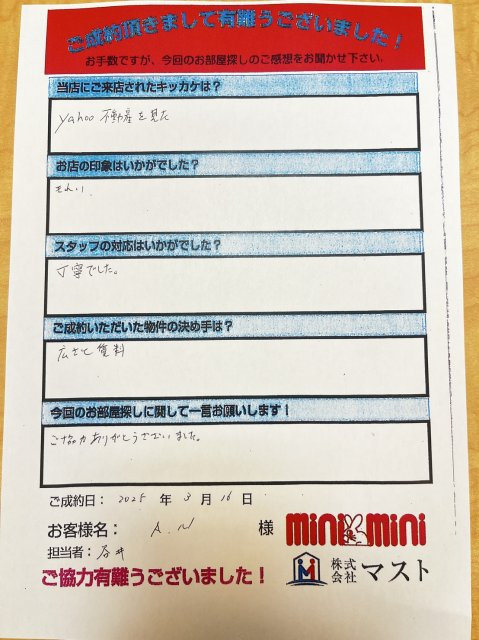 ご成約頂きまして有難うございました！
お手数ですが、今回のお部屋探しのご感想をお聞かせ下さい。
当店にご来店されたキッカケは？
yahoo 不動産を見た
お店の印象はいかがでした？
きれい
スタッフの対応はいかがでした？
丁寧でした。
ご成約いただいた物件の決め手は？
広さと賃料
今回のお部屋探しに関して一言お願いします！
ご協力ありがとうございました。
ご成約日： 2025 年 3 月 16 日
お客様名： A.N 様
mini mini
担当者：
株式会社 マスト
ご協力有難うございました！